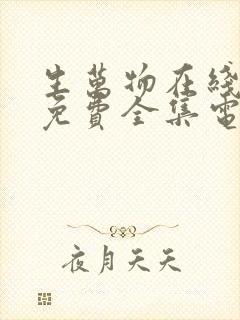 生萬物在綫
免費全集電
夜月天天